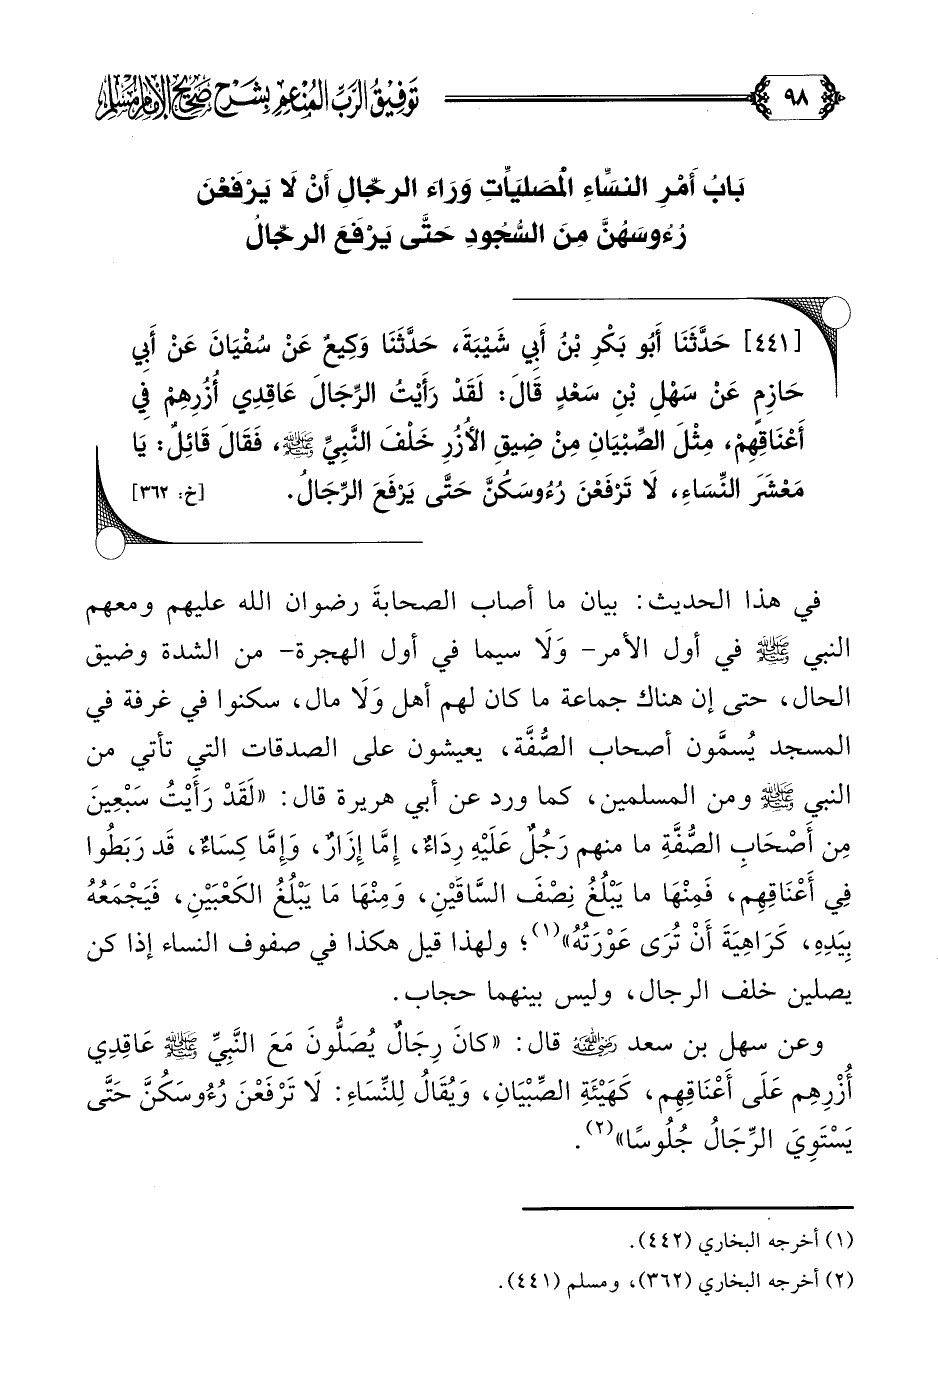 ٩٨ توفيق الرب المنعم بشرح صحيح الإمام مسلم
بَابُ أَمْرِ النسَِّاءِ الْمَصَليَِّاتِ وَرَاءَ الرجَِّالِ أَنْ لَا يَرْفَعْنَ
رُءُوسَهُنَّ مِنَ السُّجُودِ حَتَّى يَرْفَعَ الرجَِّالُ
[٤٤١] حَدَّثَنَا أَبُو بَكْرِ بْنُ أَبِي شَيْبَةَ، حَدَّثَنَا وَكِيعٌ عَنْ سُفْيَانَ عَنْ أَبِي
حَازِمٍ عَنْ سَهْلِ بْنِ سَعْدٍ قَالَ: لَقَدْ رَأَيْتُ الرِّجَالَ عَاقِدِي أُزُرِهِمْ فِي
أَعْنَاقِهِمْ، مِثْلَ الصِّبْيَانِ مِنْ ضِيقِ الأُزُرِ خَلْفَ النَّبِيِّ ﷺ، فَقَالَ قَائِلٌ: يَا
مَعْشَرَ النِّسَاءِ، لَا تَرْفَعْنَ رُءُوسَكُنَّ حَتَّى يَرْفَعَ الرِّجَالُ. [خ: ٣٦٢]
في هذا الحديث: بيان ما أصاب الصحابةَ رضوان الله عليهم ومعهم
النبي ﷺ في أول الأمر- وَلَا سيما في أول الهجرة- من الشدة وضيق
الحال، حتى إن هناك جماعة ما كان لهم أهل وَلَا مال، سكنوا في غرفة في
المسجد يُسمَّون أصحاب الصُّفَّة، يعيشون على الصدقات التي تأتي من
النبي ﷺ ومن المسلمين، كما ورد عن أبي هريرة قال: «لَقَدْ رَأَيْتُ سَبْعِينَ
مِن أَصْحَابِ الصُّفَّةِ ما منهم رَجُلٌ عَلَيْهِ رِدَاءٌ، إِمَّا إِزَارٌ، وَإِمَّا كِسَاءٌ، قَد رَبَطُوا
فِي أَعْنَاقِهِم، فَمِنْهَا ما يَبْلُغُ نِصْفَ السَّاقَيْنِ، وَمِنْهَا مَا يَبْلُغُ الكَعْبَيْنِ، فَيَجْمَعُهُ
بِيَدِهِ، كَرَاهِيَةَ أَنْ تُرَى عَوْرَتُهُ»(١)؛ ولهذا قيل هكذا في صفوف النساء إذا كن
يصلين خلف الرجال، وليس بينهما حجاب.
وعن سهل بن سعد رضي الله عنه قال: «كانَ رِجَالٌ يُصَلُّونَ مَعَ النَّبِيِّ ﷺ عَاقِدِي
أُزْرِهِم عَلَى أَعْنَاقِهِم، كَهَيْئَةِ الصِّبْيَانِ، وَيُقَالُ لِلنِّسَاءِ: لَا تَرْفَعْنَ رُءُوسَكُنَّ حَتَّى
يَسْتَوِيَ الرِّجَالُ جُلُوسًا»(٢).
(١) أخرجه البخاري (٤٤٢).
(٢) أخرجه البخاري (٣٦٢)، ومسلم (٤٤١).